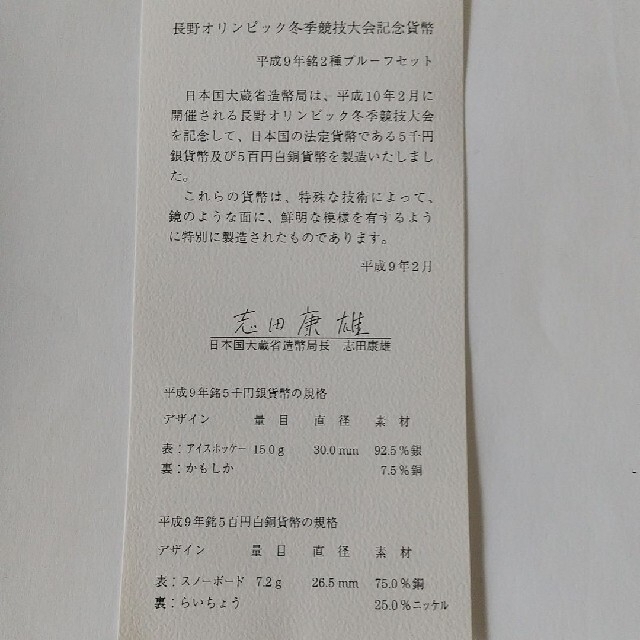 長野オリンピック冬季競技大会記念貨幣
平成9年銘2種プルーフセット
日本国大蔵省造幣局は、平成10年2月に
開催される長野オリンピック冬季競技大会
を記念して、日本国の法定貨幣である5千円
銀貨幣及び5百円白銅貨幣を製造いたしまし
た。
これらの貨幣は、特殊な技術によって、
鏡のような面に、鮮明な模様を有するよう
に特別に製造されたものであります。
平成9年2月
志田康雄
日本国大蔵省造幣局長 志田康雄
平成9年銘5千円銀貨幣の規格
デザイン 量目 直径 素材
表:アイスホッケー 15.0g 30.0mm 92.5%銀
裏:かもしか 7.5%銅
平成9年銘5百円白銅貨幣の規格
デザイン 量目 直径 素材
表:スノーボード 7.2g 26.5mm 75.0%銅
裏:らいちょう 25.0%ニッケル